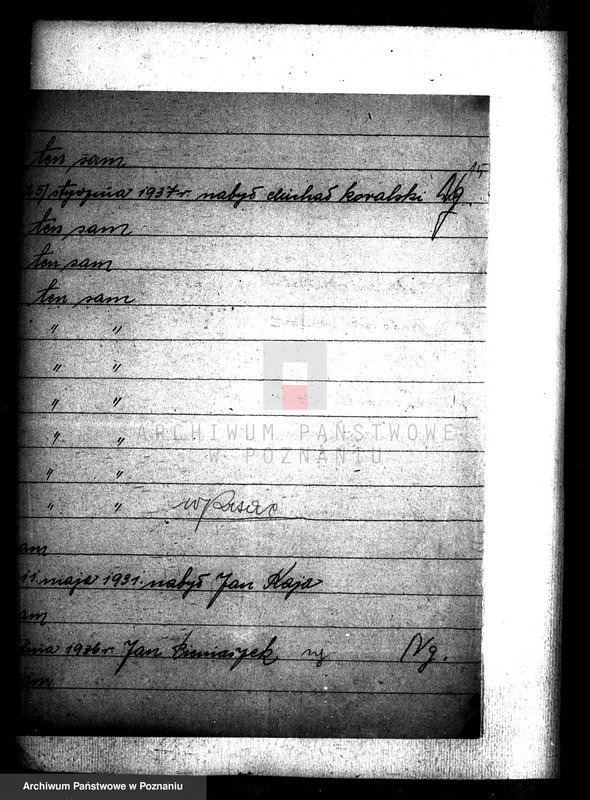 ten sam
25) stycznia 1937 r. nabył Michał Kowalski Ng.
ten sam
ten sam
ten sam
" "
" "
" "
" "
" "
" " wpisać
am
11. maja 1931. nabył Jan Kaja
am
dnia 1936 r. Jan ng Ng.
am
ARCHIWUM PAŃSTWOWE
W POZNANIU
Archiwum Państwowe w Poznaniu